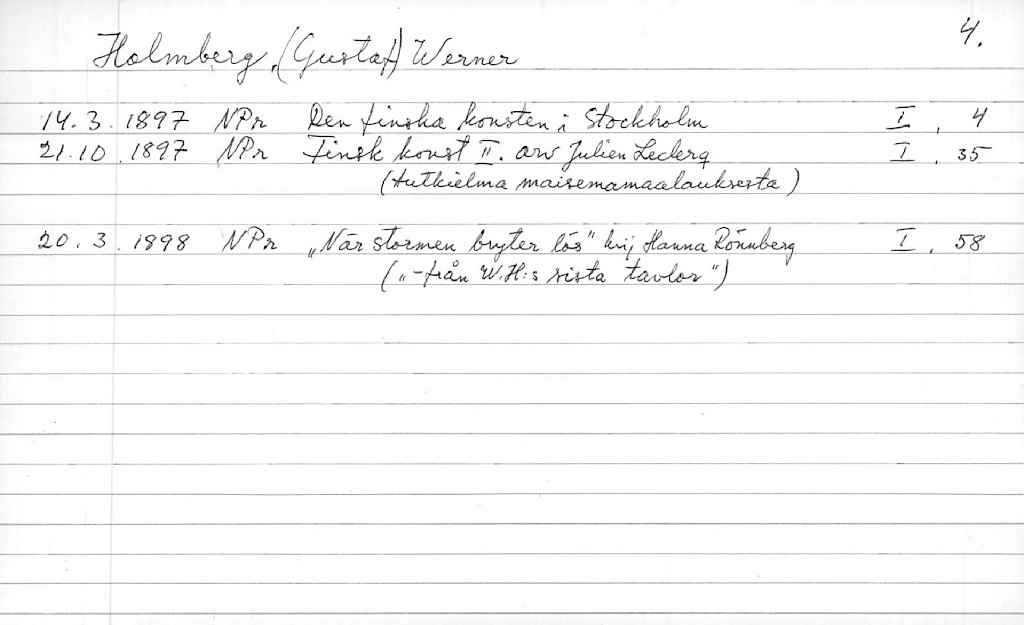 4.
Holmberg, (Gustaf) Werner
14.3.1897 NPr Den finska konsten i Stockholm I, 4
21.10.1897 NPr Finsk konst II. arv Julien Leclerq I, 35
(tutkielma maisemamaalauksesta)
20.3.1898 NPr „När stormen bryter lös" kirj Hanna Rönnberg I, 58
(„-från W.H:s sista tavlor")